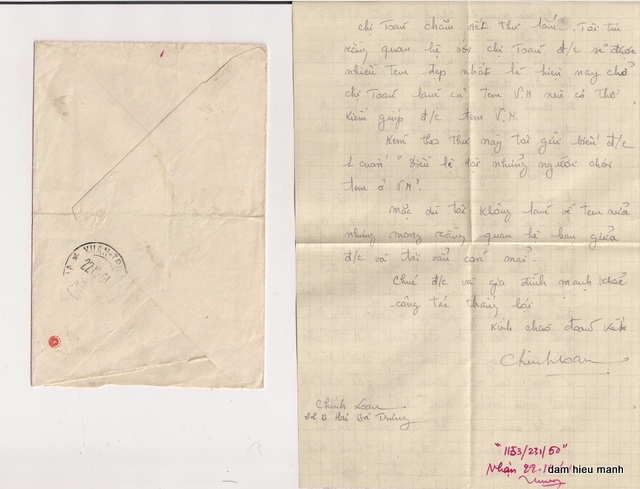 XUAN-TRU
22
61
chị Toàn chăm viết thư lắm. Tôi tin
rằng quan hệ với chị Toàn đ/c sẽ được
nhiều tem đẹp nhất là hiện nay chỗ
chị Toàn làm cả tem V.N nên có thể
kiếm giúp đ/c tem V.N.
Kèm theo thư này tôi gửi biếu đ/c
1 cuốn "Điều lệ Hội những người chơi
tem ở V.N".
Mặc dù tôi không làm về tem nữa
nhưng mong rằng quan hệ bạn giữa
đ/c và tôi vẫn còn mãi.
Chúc đ/c và gia đình mạnh khoẻ
công tác thắng lợi
Kính chào đoàn kết
Chinhloan
Chinh Loan
Hai Bà Trưng
"1153/231/50"
Nhận 22-
dam hieu manh